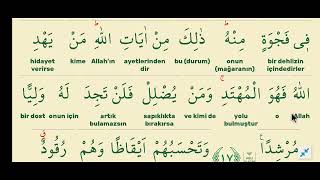 فِى فَجْوَةٍ مِنْهُ ذٰلِكَ مِنْ اٰيَاتِ اللّٰهِ مَنْ يَهْدِ
bir dehlizin içindedirler onun (mağaranın) bu (durum) ayetlerinden dir Allah'ın kime hidayet verirse
اللّٰهُ فَهُوَ الْمُهْتَدِ وَمَنْ يُضْلِلْ فَلَنْ تَجِدَ لَهُ وَلِيًّا
Allah o yolu bulmuştur ve kimi de sapıklıkta bırakırsa artık bulamazsın onun için bir dost
مُرْشِدًا ﴿١٧﴾ وَتَحْسَبُهُمْ اَيْقَاظًا وَهُمْ رُقُودٌ